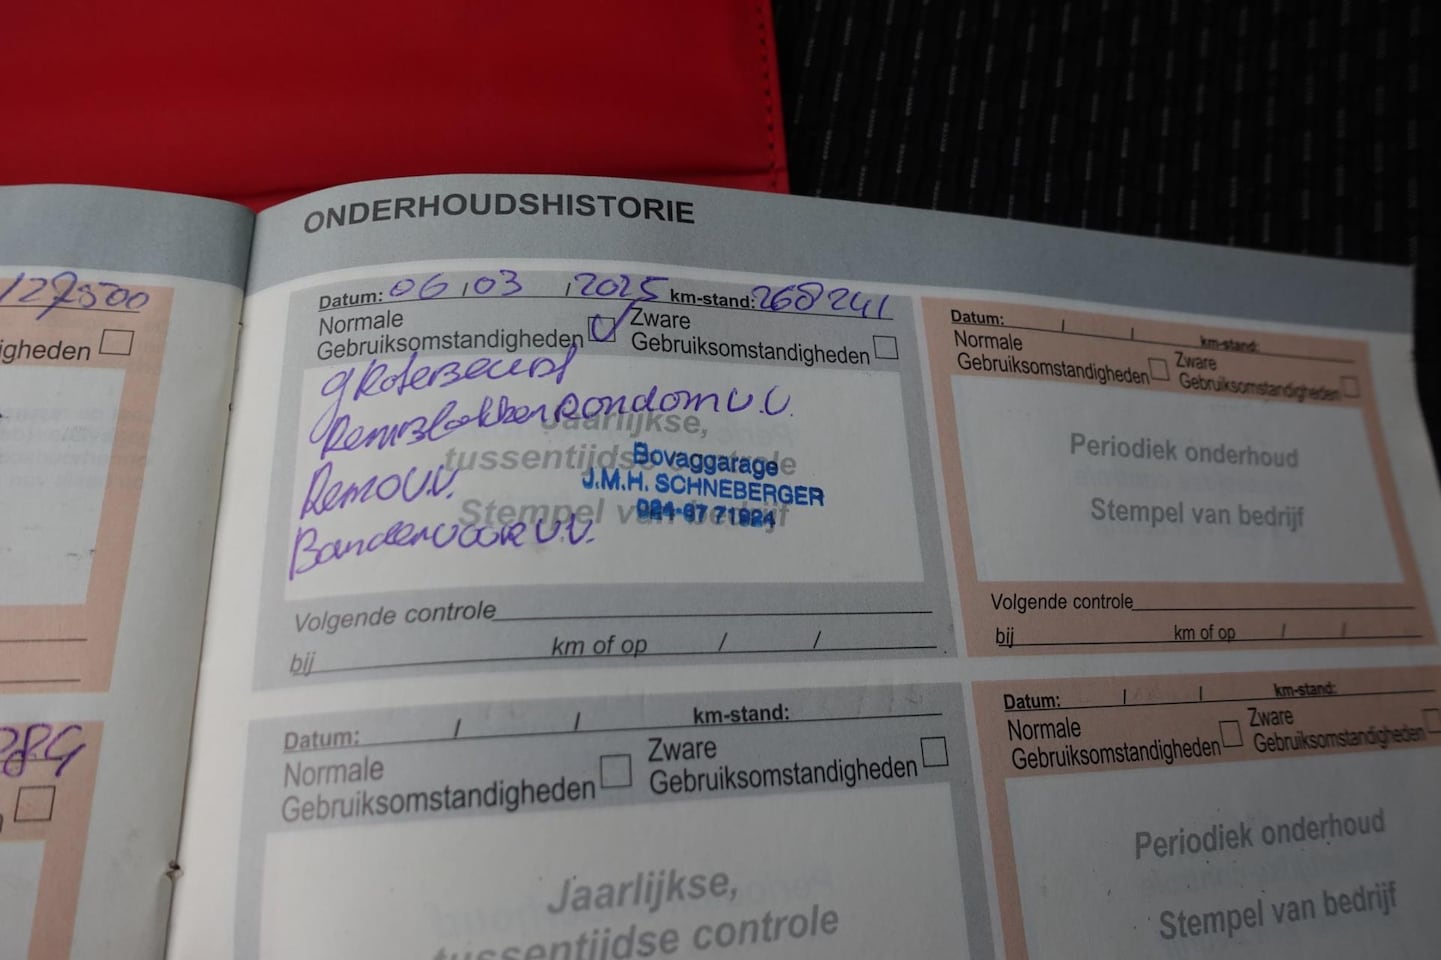 127500
gheden
ONDERHOUDSHISTORIE
Datum: 06 / 03 / 2025 km-stand: 268241
Normale Gebruiksomstandigheden
Zware Gebruiksomstandigheden
grotebeurt
Remblokken rondom v.v.
Remo v.v.
Banden voor v.v.
Jaarlijkse,
tussentijdse controle
Stempel van bedrijf
Bovaggarage
J.M.H. SCHNEBERGER
024-67 71924
Volgende controle
bij km of op / /
Datum: / / km-stand:
Normale Gebruiksomstandigheden
Zware Gebruiksomstandigheden
Periodiek onderhoud
Stempel van bedrijf
Volgende controle
bij km of op / /
Datum: / / km-stand:
Normale Gebruiksomstandigheden
Zware Gebruiksomstandigheden
Jaarlijkse,
tussentijdse controle
Datum: / / km-stand:
Normale Gebruiksomstandigheden
Zware Gebruiksomstandigheden
Periodiek onderhoud
Stempel van bedrijf